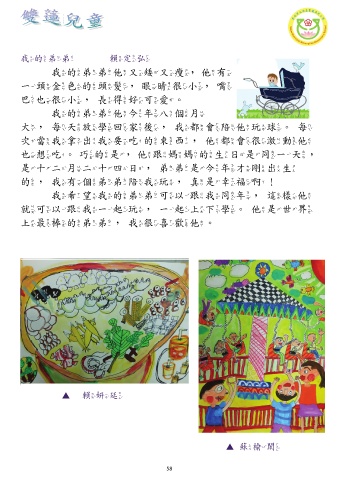 雙蓮兒童
我的弟弟 賴定弘
我的弟弟他又矮又瘦，他有
一頭金色的頭髮，眼睛很小，嘴
巴也很小，長得好可愛。
我的弟弟他今年八個月
大，每天放學回家後，我都會陪他玩球。每
次當我拿出我要吃的東西，他都會很激動他
也想吃。巧的是，他跟媽媽的生日是同一天，
是十二月二十四日，弟弟是今年才剛出生
的，我有個弟弟陪我玩，真是幸福啊！
我希望我的弟弟可以跟我同年，這樣他
就可以跟我一起玩，一起上下學。他是世界
上最棒的弟弟，我很喜歡他。
▲ 賴妍廷
▲ 蘇榆閏
58